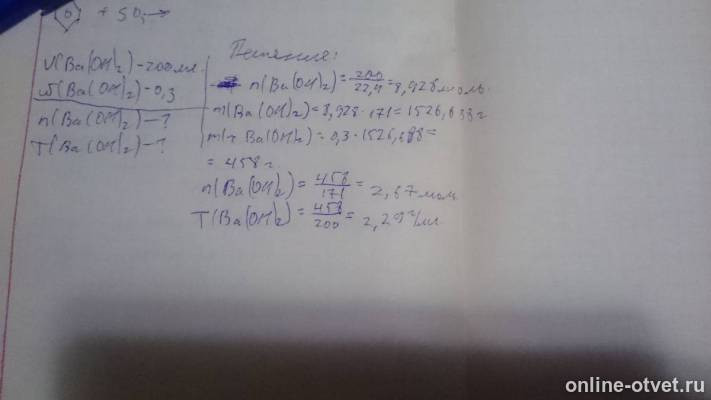 + SO₃ →
V(Ba(OH)₂) - 200 мл.
ω(Ba(OH)₂) - 0,3
n(Ba(OH)₂) - ?
T(Ba(OH)₂) - ?
Решение:
n(Ba(OH)₂) = 200/22,4 = 8,928 моль.
m(Ba(OH)₂) = 8,928 · 171 = 1526,688 г
m(чBa(OH)₂) = 0,3 · 1526,688 =
= 458 г.
n(Ba(OH)₂) = 458/171 = 2,67 мол.
T(Ba(OH)₂) = 458/200 = 2,29 г/мл.
online-otvet.ru